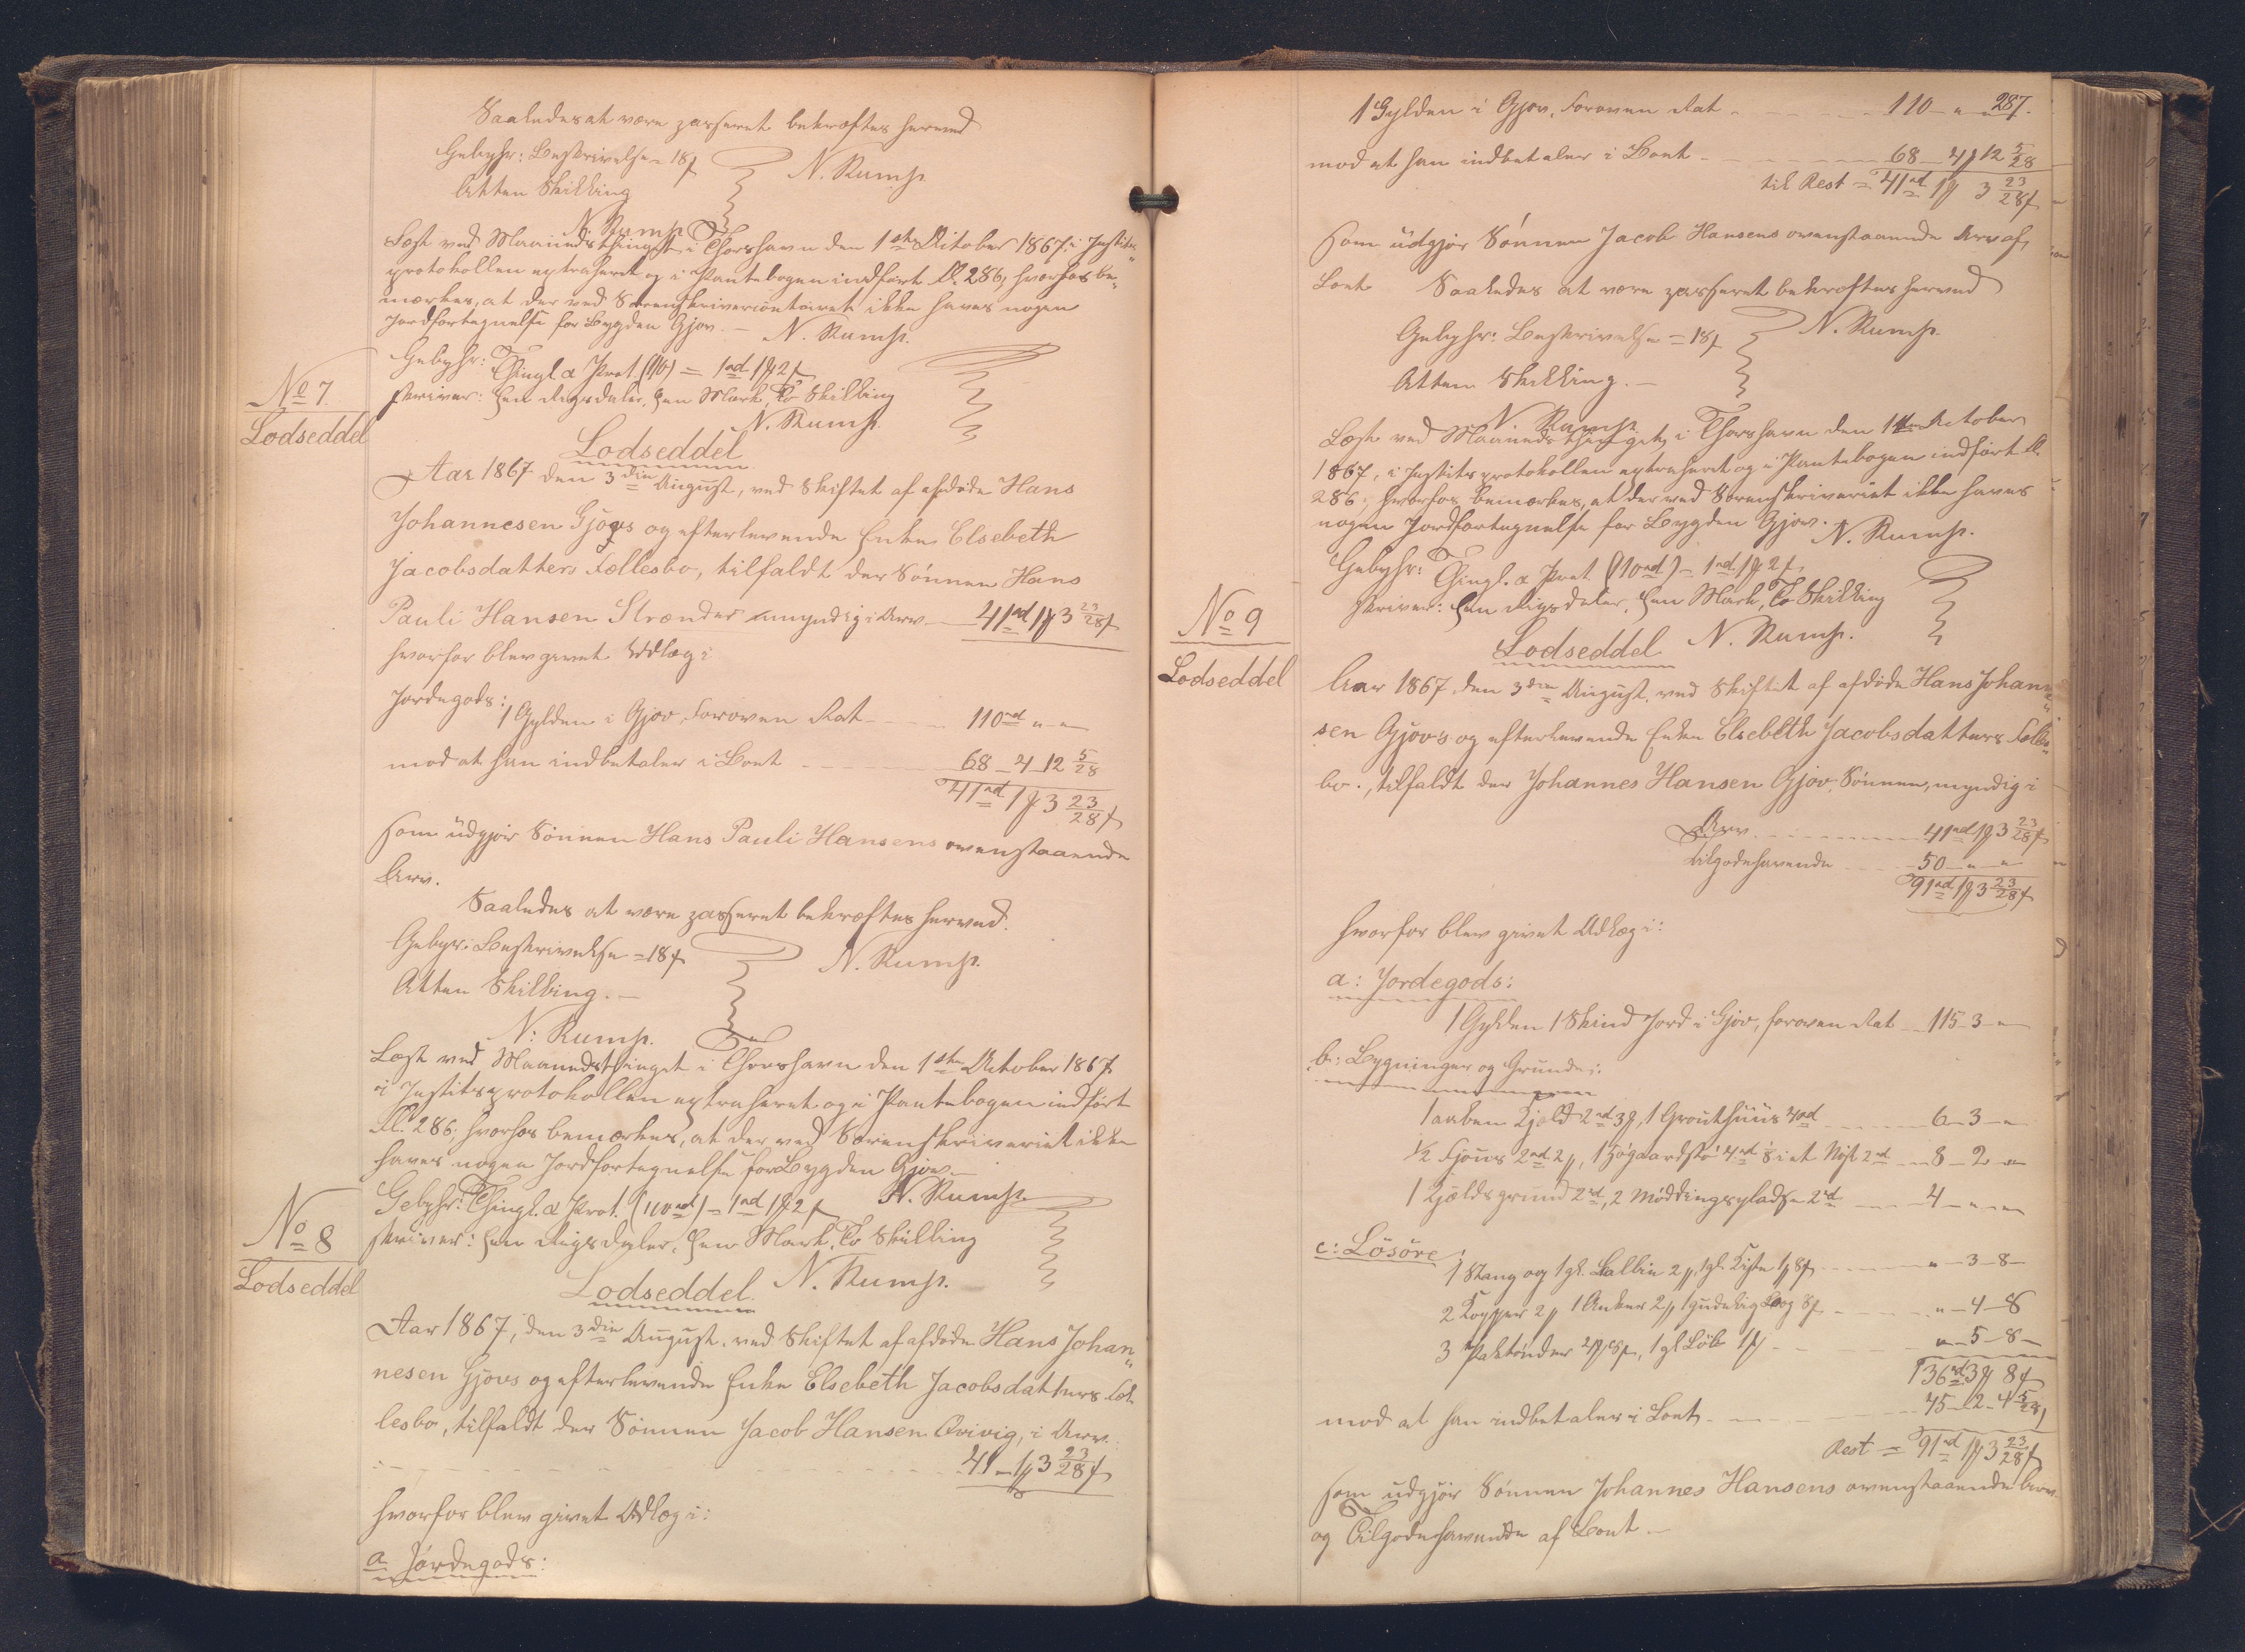 Saaledes at være passeret bekræftes herved
Gebyhr: Beskrivelse = 18 ß
Atten Skilling
N. Rump.
N. Rump
Læst ved Maanedsthinget i Thorshavn den 1ste October 1867, i Justits„
protokollen extraheret og i Pantebogen indført Fl. 286, hvorhos be„
mærkes, at der ved Sorenskrivercontoiret ikke haves nogen
Jordfortegnelse for Bygden Gjov. — N. Rump.
Gebyhr: Thingl. & Prot. (110) = 1rd 1 ₰ 2 ß
skriver: Een Rigsdaler, Een Mark, To Skilling
N. Rump.
No 7.
Lodseddel
Lodseddel
Aar 1867 den 3die August, ved Skiftet af afdøde Hans
Johannesen Gjovs og efterlevende Enke Elsebeth
Jacobsdatters Fællesbo, tilfaldt der Sønnen Hans
Pauli Hansen Strænder umyndig i Arv — 41rd 1 ₰ 3 23/28 ß
hvorfor blev givet Udlæg i:
Jordegods:
1 Gylden i Gjov, Foroven Rat — 110rd " "
mod at han indbetaler i Boet — 68 — 4 — 12 5/28
41rd 1 ₰ 3 23/28 ß
som udgjør Sønnen Hans Pauli Hansens ovenstaaende
Arv.
Saaledes at være passeret bekræftes herved.
Gebyr: Beskrivelse = 18 ß
Atten Skilling. —
N. Rump.
N: Rump.
Læst ved Maanedsthinget i Thorshavn den 1ste October 1867
i Justitsprotokollen extraheret og i Pantebogen indført
Fl. 286; hvorhos bemærkes, at der ved Sorenskriveriet ikke
haves nogen Jordfortegnelse for Bygden Gjov. —
Gebyhr: Thingl. & Prot. (110rd) = 1rd 1 ₰ 2 ß N. Rump.
skriver: Een Rigsdaler, Een Mark, To Skilling
No 8
Lodseddel
Lodseddel. N. Rump.
Aar 1867, den 3die August, ved Skiftet af afdøde Hans Johan„
nesen Gjovs og efterlevende Enke Elsebeth Jacobsdatters Fæl„
lesbo, tilfaldt der Sønnen Jacob Hansen Qvivig, i Arv.
41 — 1 ₰ 3 23/28 ß
hvorfor blev givet Udlæg i:
a Jordegods:
287.
1 Gylden i Gjov, Foroven Rat — 110 — " —
mod at han indbetaler i Boet — 68 — 4 ₰ 12 5/28
til Rest = 41rd 1 ₰ 3 23/28 ß
som udgjør Sønnen Jacob Hansens ovenstaaende Arv af
Boet. Saaledes at være passeret bekræftes herved
Gebyhr: Beskrivelse = 18 ß N. Rump.
Atten Skilling. —
N. Rump
Læst ved Maanedsthinget i Thorshavn den 1ste October
1867, i Justitsprotokollen extraheret og i Pantebogen indført Fl.
286; hvorhos bemærkes, at der ved Sorenskriveriet ikke haves
nogen Jordfortegnelse for Bygden Gjov. N. Rump.
Gebyhr: Thingl. & Prot (110rd) = 1rd 1 ₰ 2 ß
skriver: Een Rigsdaler, Een Mark, To Skilling
No 9
Lodseddel
Lodseddel N. Rump.
Aar 1867 den 3die August, ved Skiftet af afdøde Hans Johanne„
sen Gjovs og efterlevende Enke Elsebeth Jacobsdatters Fælles„
bo, tilfaldt der Johannes Hansen Gjov, Sønnen, myndig i
Arv — 41rd 1 ₰ 3 23/28 ß
tilgodehavende — 50 — " — "
91rd 1 ₰ 3 23/28 ß
hvorfor blev givet Udlæg i:
a: Jordegods:
1 Gylden 1 Skind Jord i Gjov, foroven Rat — 115 — 3 — "
b: Bygninger og Grunde:
1 aaben Kjæld 2rd 3 ₰, 1 Grouthuus 4rd — 6 — 3 — "
1/2 Fjouns 2rd 2 ₰, 1 4rd i et Nøst 2rd — 8 — 2 — "
1 Kjældsgrund 2rd, 2 Møddingspladse 2rd — 4 — " — "
c: Løsøre
1 Stang og 1 gl. Ballie 2 ₰, 1 gl. Kiste 1 ₰ 8 ß — " — 3 — 8 —
2 Kopper 2 ₰ 1 Anker 2 ₰ 1 gudelig Bog 8 ß — " — 4 — 8
3 1 gl Løb 1 ₰ — " — 5 — 8 —
136rd 3 ₰ 8 ß
mod at han indbetaler i Boet — 45 — 2 — 4 5/28
Rest = 91rd 1 ₰ 3 23/28 ß
som udgjør Sønnen Johannes Hansens ovenstaaende Arv
og Tilgodehavende af Boet —